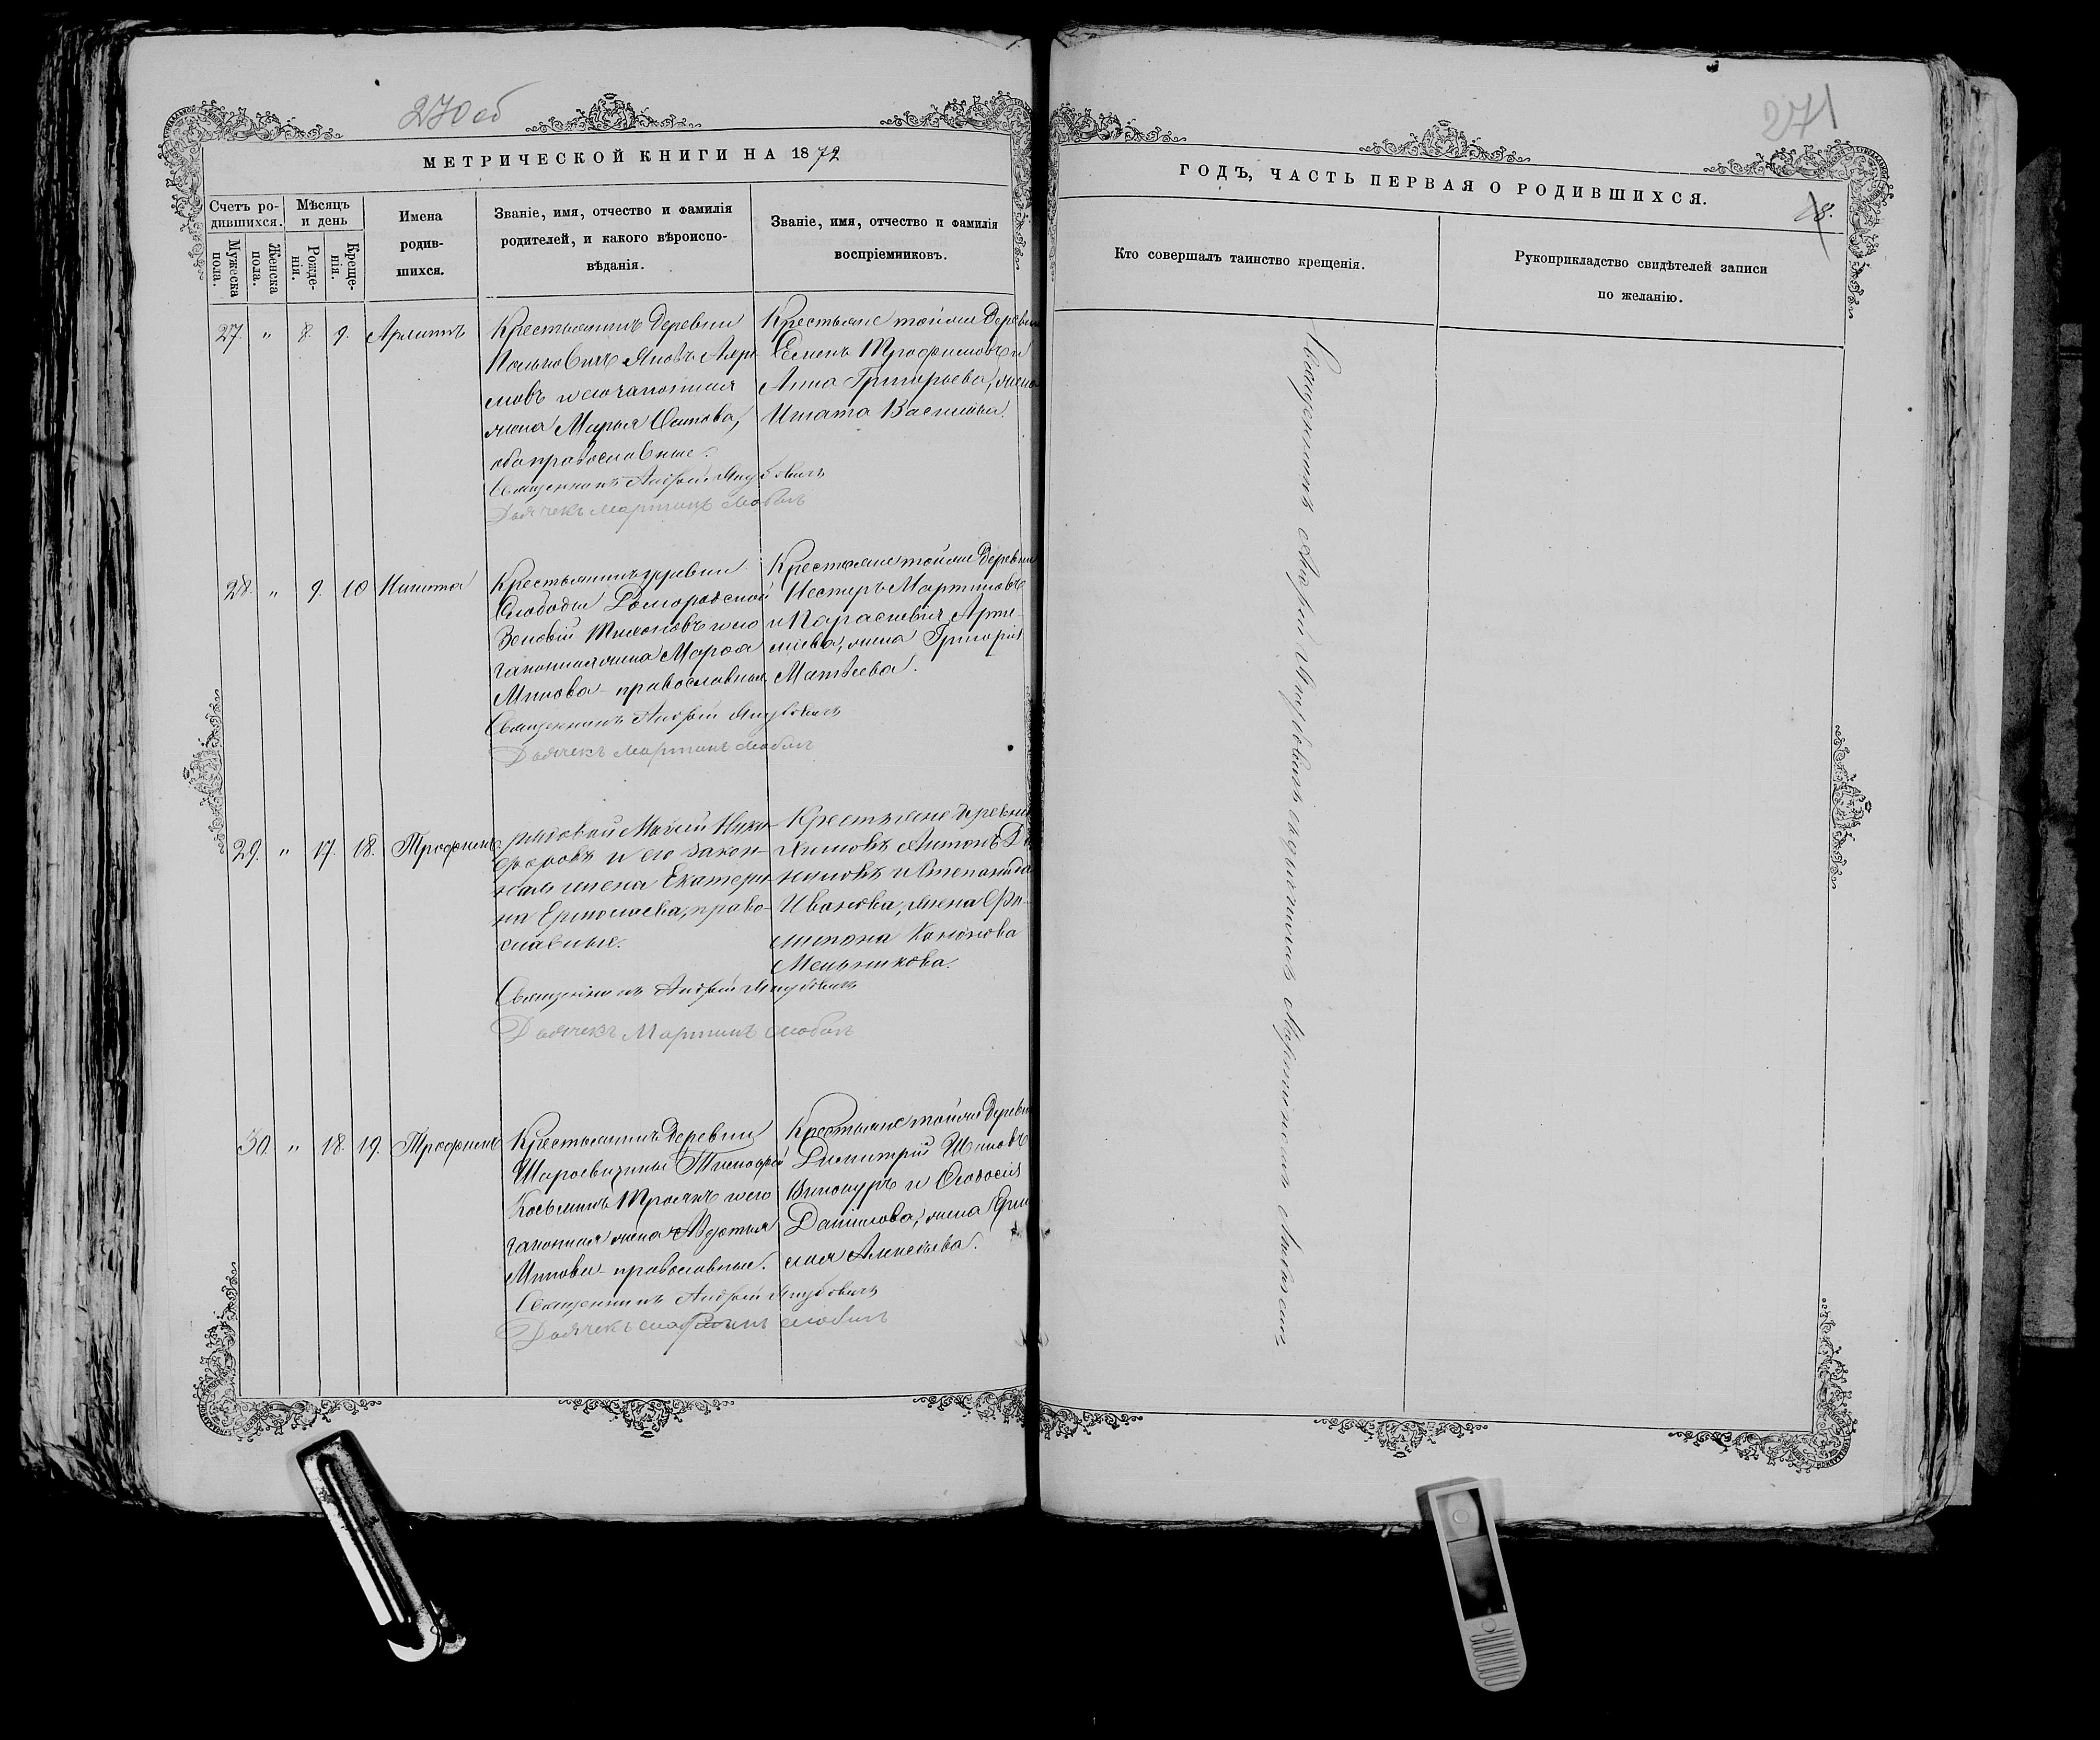 270 об
МЕТРИЧЕСКОЙ КНИГИ НА 1872
Счетъ ро-
дившихся.
Мѣсяцъ
и день
Мужеска
пола.
Женска
пола.
Рожде-
нія.
Креще-
нія.
Имена
родив-
шихся.
Званіе, имя, отчество и фамилія
родителей, и какого вѣроиспо-
вѣданія.
Званіе, имя, отчество и фамилія
воспріемниковъ.
27. " 8. 9.
Крестьянинъ деревни
и его законная
жена Марья Осипова,
оба православные.
Священникъ Андрей Якубовичъ
Дьячекъ Мартинъ
Крестьяне той же деревни
Семенъ Трофимовъ и
Анна Григорьева, жена
Игната Васильева.
28. " 9. 10 Никита
Крестьянинъ деревни
Слободы
Зеновій Тихоновъ и его
законная жена Марѳа
Минова православныя
Священникъ Андрей Якубовичъ
Дьячекъ Мартинъ
Крестьяне той же деревни
Несторъ Мартиновъ
и Параскевія Арте-
міева, жена Григорія
Матѳеева.
29. " 17. 18. Трофимъ
рядовой Матѳей Ники-
форовъ и его закон-
ная жена Екатери-
на Ермолаева, право-
славные.
Священникъ Андрей Якубовичъ
Дьячекъ Мартинъ
Крестьяне деревни
Антонъ
и Степанида
Иванова, жена Фи-
липона Кононова
Мельникова.
30. " 18. 19. Трофимъ
Крестьянинъ деревни
Шароевщины Тимофей
Косьминъ Троянъ и его
законная жена Авдотья
Минова православные.
Священникъ Андрей Якубовичъ
Дьячекъ Мартинъ
Крестьяне той же деревни
Димитрій
Винокуръ и Ѳеодосія
Данилова, жена Ерми-
лая Алексѣева.
271
ГОДЪ, ЧАСТЬ ПЕРВАЯ О РОДИВШИХСЯ.
28.
Кто совершалъ таинство крещенія.
Рукоприкладство свидѣтелей записи
по желанію.
Священникъ Андрей Якубовичъ съ дьячкомъ Мартиномъ